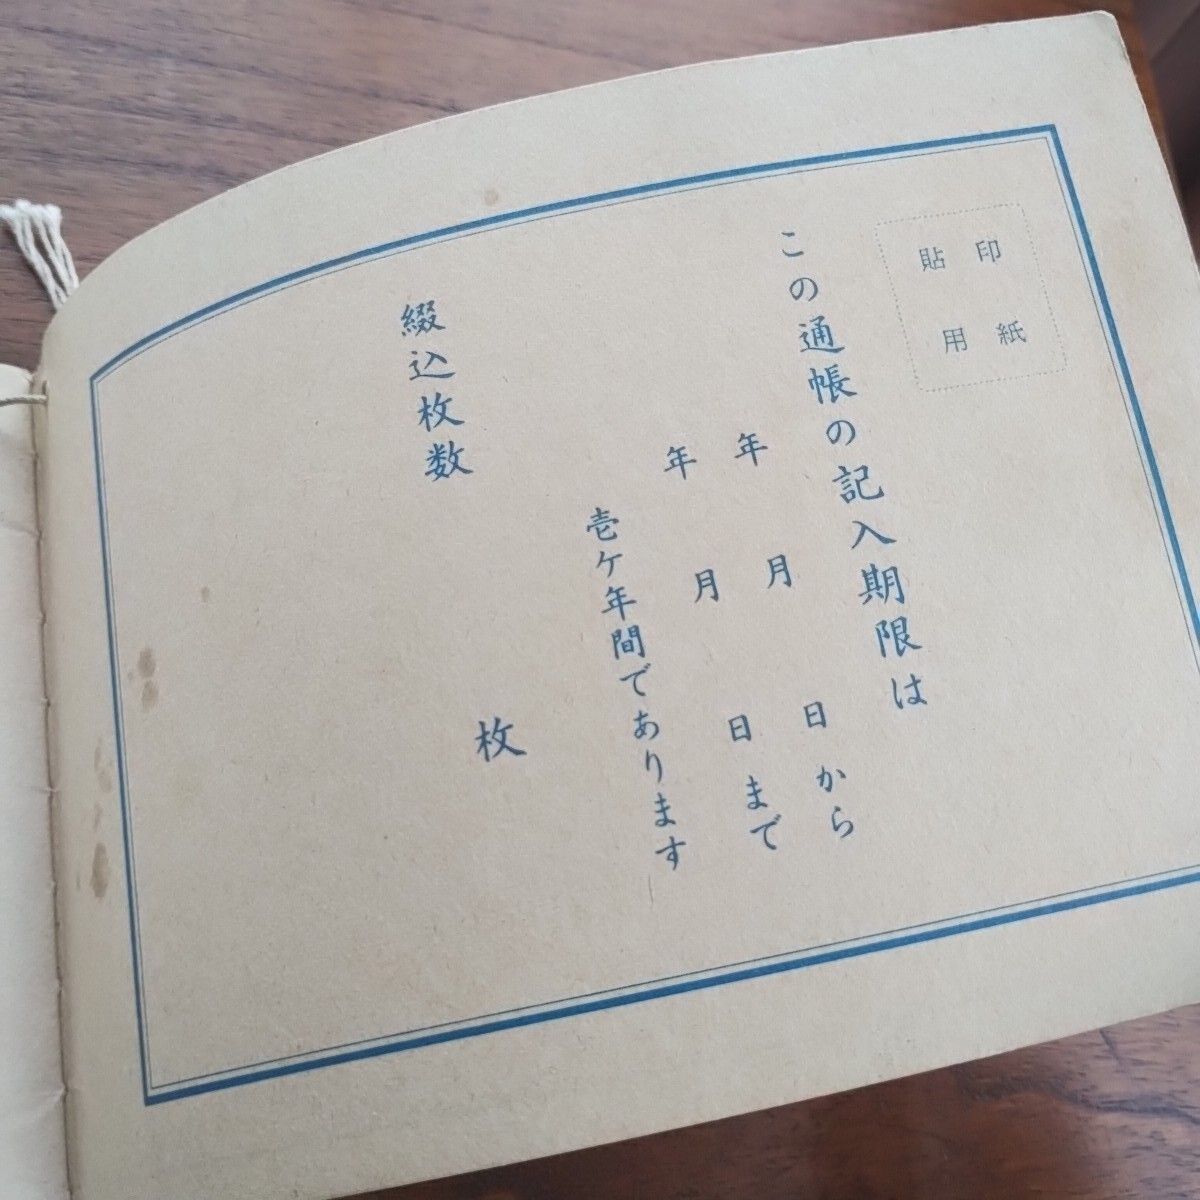 印紙
貼用
この通帳の記入期限は
年 月 日から
年 月 日まで
壱ケ年間であります
綴込枚数 枚